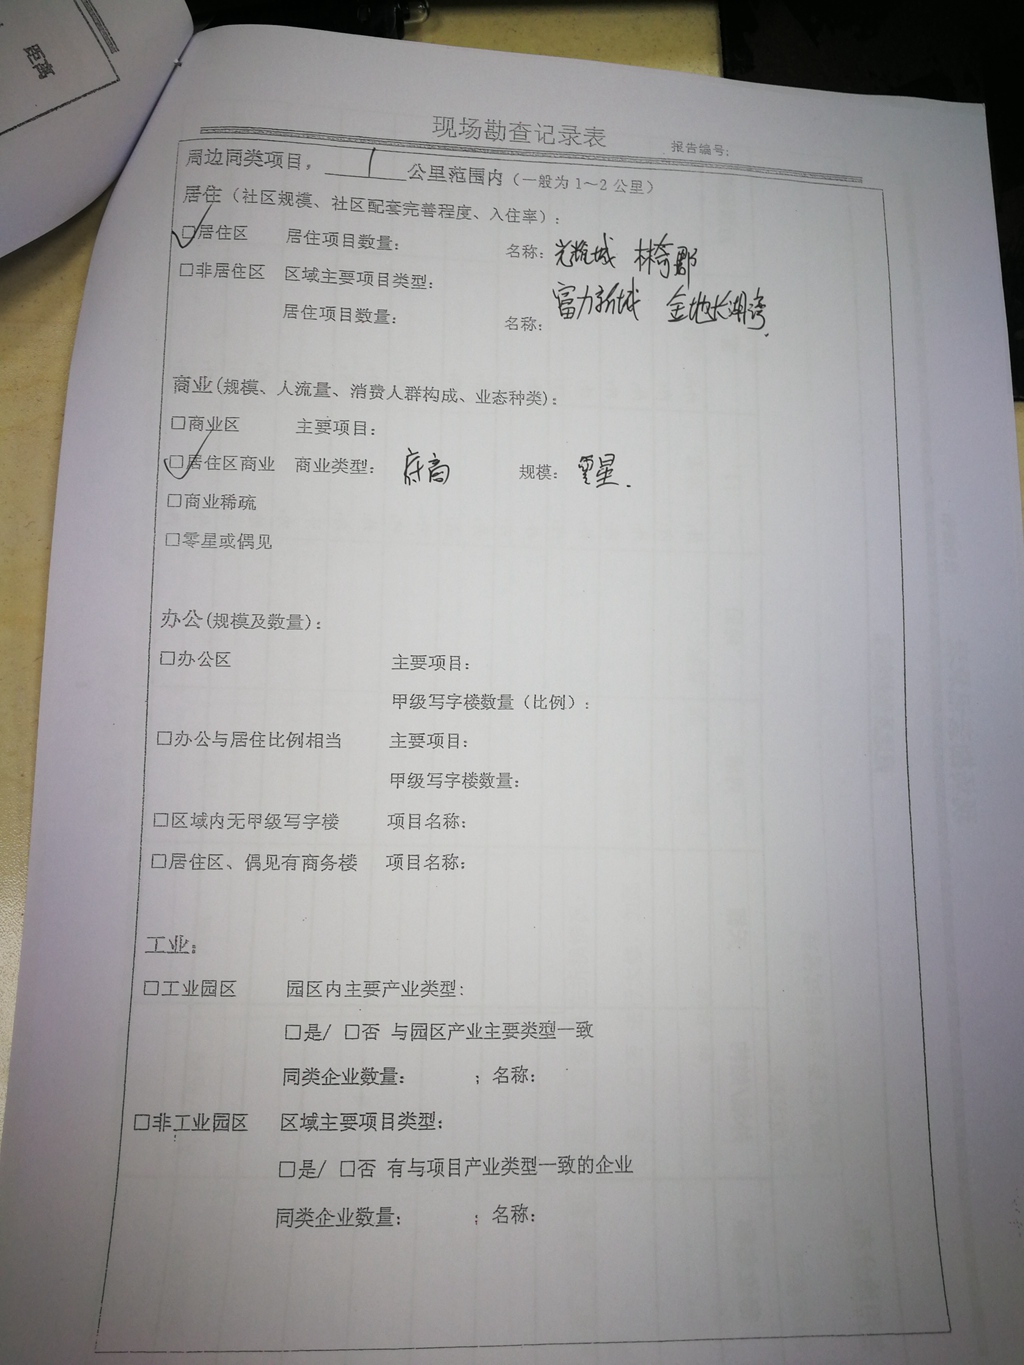 距离
现场勘查记录表
报告编号:
周边同类项目, 1 公里范围内(一般为1~2公里)
居住(社区规模、社区配套完善程度、入住率):
☑居住区 居住项目数量: 名称: 林奇郡
□非居住区 区域主要项目类型: 富力新城 金地长湖湾
居住项目数量: 名称:
商业(规模、人流量、消费人群构成、业态种类):
□商业区 主要项目:
☑居住区商业 商业类型: 底商 规模: 零星.
□商业稀疏
□零星或偶见
办公(规模及数量):
□办公区 主要项目:
甲级写字楼数量(比例):
□办公与居住比例相当 主要项目:
甲级写字楼数量:
□区域内无甲级写字楼 项目名称:
□居住区、偶见有商务楼 项目名称:
工业:
□工业园区 园区内主要产业类型:
□是/ □否 与园区产业主要类型一致
同类企业数量: ; 名称:
□非工业园区 区域主要项目类型:
□是/ □否 有与项目产业类型一致的企业
同类企业数量: ; 名称: